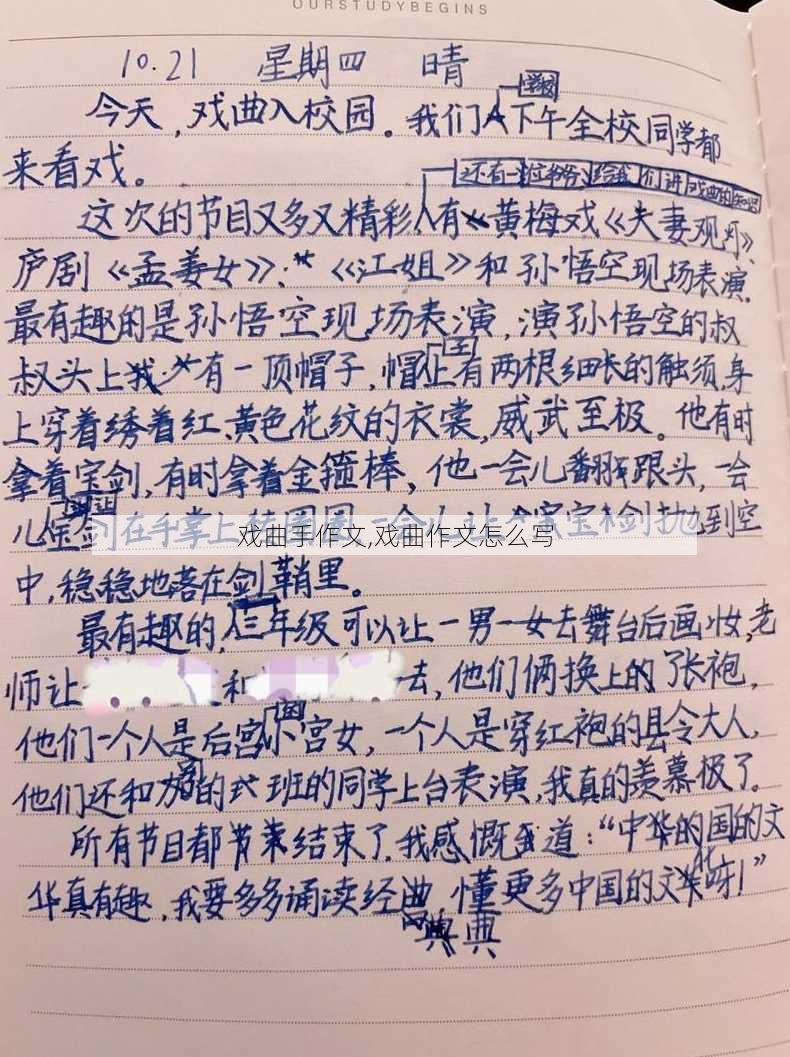 OURSTUDYBEGINS
10.21 星期四 晴
学校
今天,戏曲入校园。我们下午全校同学都
来看戏。
还有一位爷爷给我们讲戏曲的知识
这次的节目又多又精彩,有黄梅戏《夫妻观灯》、
庐剧《孟姜女》、《江姐》和孙悟空现场表演。
最有趣的是孙悟空现场表演,演孙悟空的叔
叔头上有一顶帽子,帽上有两根细长的触须,身
上穿着绣着红、黄色花纹的衣裳,威武至极。他有时
拿着宝剑,有时拿着金箍棒,他一会儿翻跟头,一会
儿让宝剑在手掌上转圈圈,一会儿让宝剑抛到空
戏曲手作文,戏曲作文怎么写
中,稳稳地落在剑鞘里。
最有趣的,三年级可以让一男一女去舞台后画妆,老
师让 和 去,他们俩换上的了长袍,
他们一个人是后宫的小宫女,一个人是穿红袍的县令大人,
他们还和别的班的同学上台表演,我真的羡慕极了。
所有节目都结束了,我感慨道:“中华的国的文
华真有趣,我要多多诵读经典,懂更多中国的文化呀!”
典